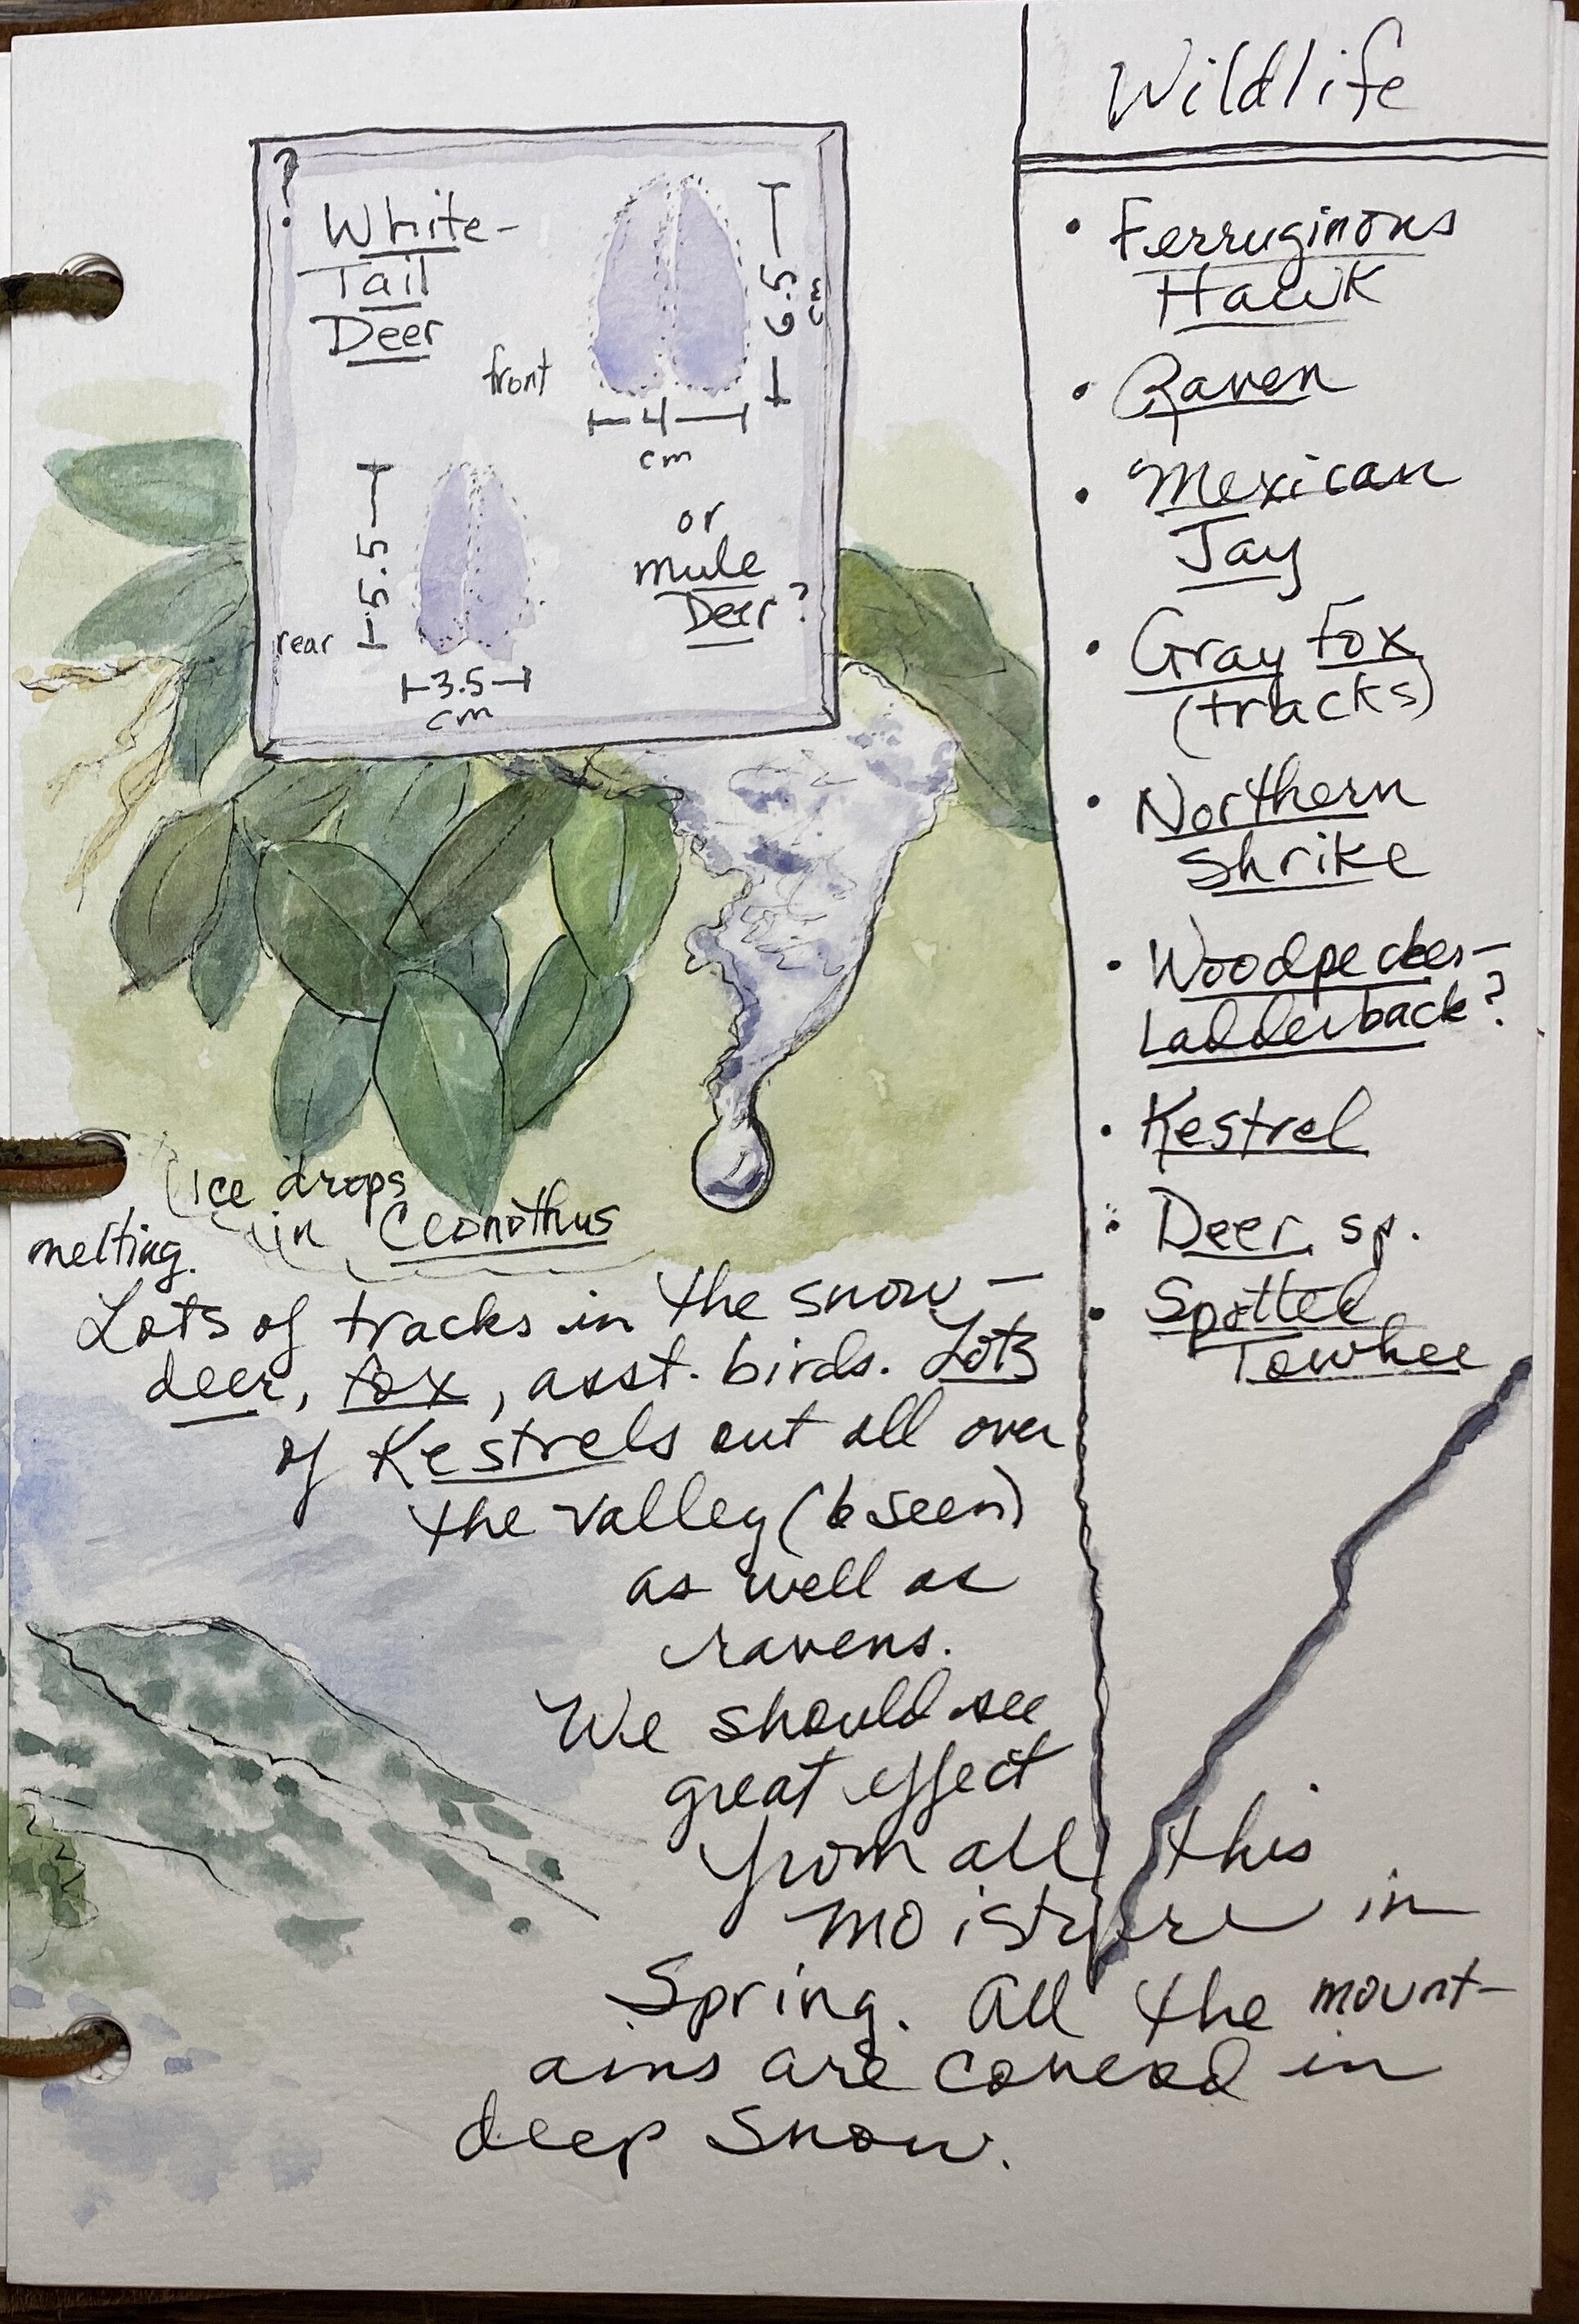 ?
White-
Tail
Deer
front
6.5
cm
4
cm
5.5
rear
3.5
cm
or
mule
Deer?
Ice drops
in Ceonothus
melting.
Lots of tracks in the snow —
deer, fox, asst. birds. Lots
of Kestrels out all over
the valley (6 seen)
as well as
ravens.
We should see
great effect
from all this
moisture in
Spring. All the mount-
ains are covered in
deep snow.
Wildlife
• Ferruginous
Hawk
• Raven
• Mexican
Jay
• Gray Fox
(tracks)
• Northern
Shrike
• Woodpecker-
Ladderback?
• Kestrel
• Deer sp.
• Spotted
Towhee